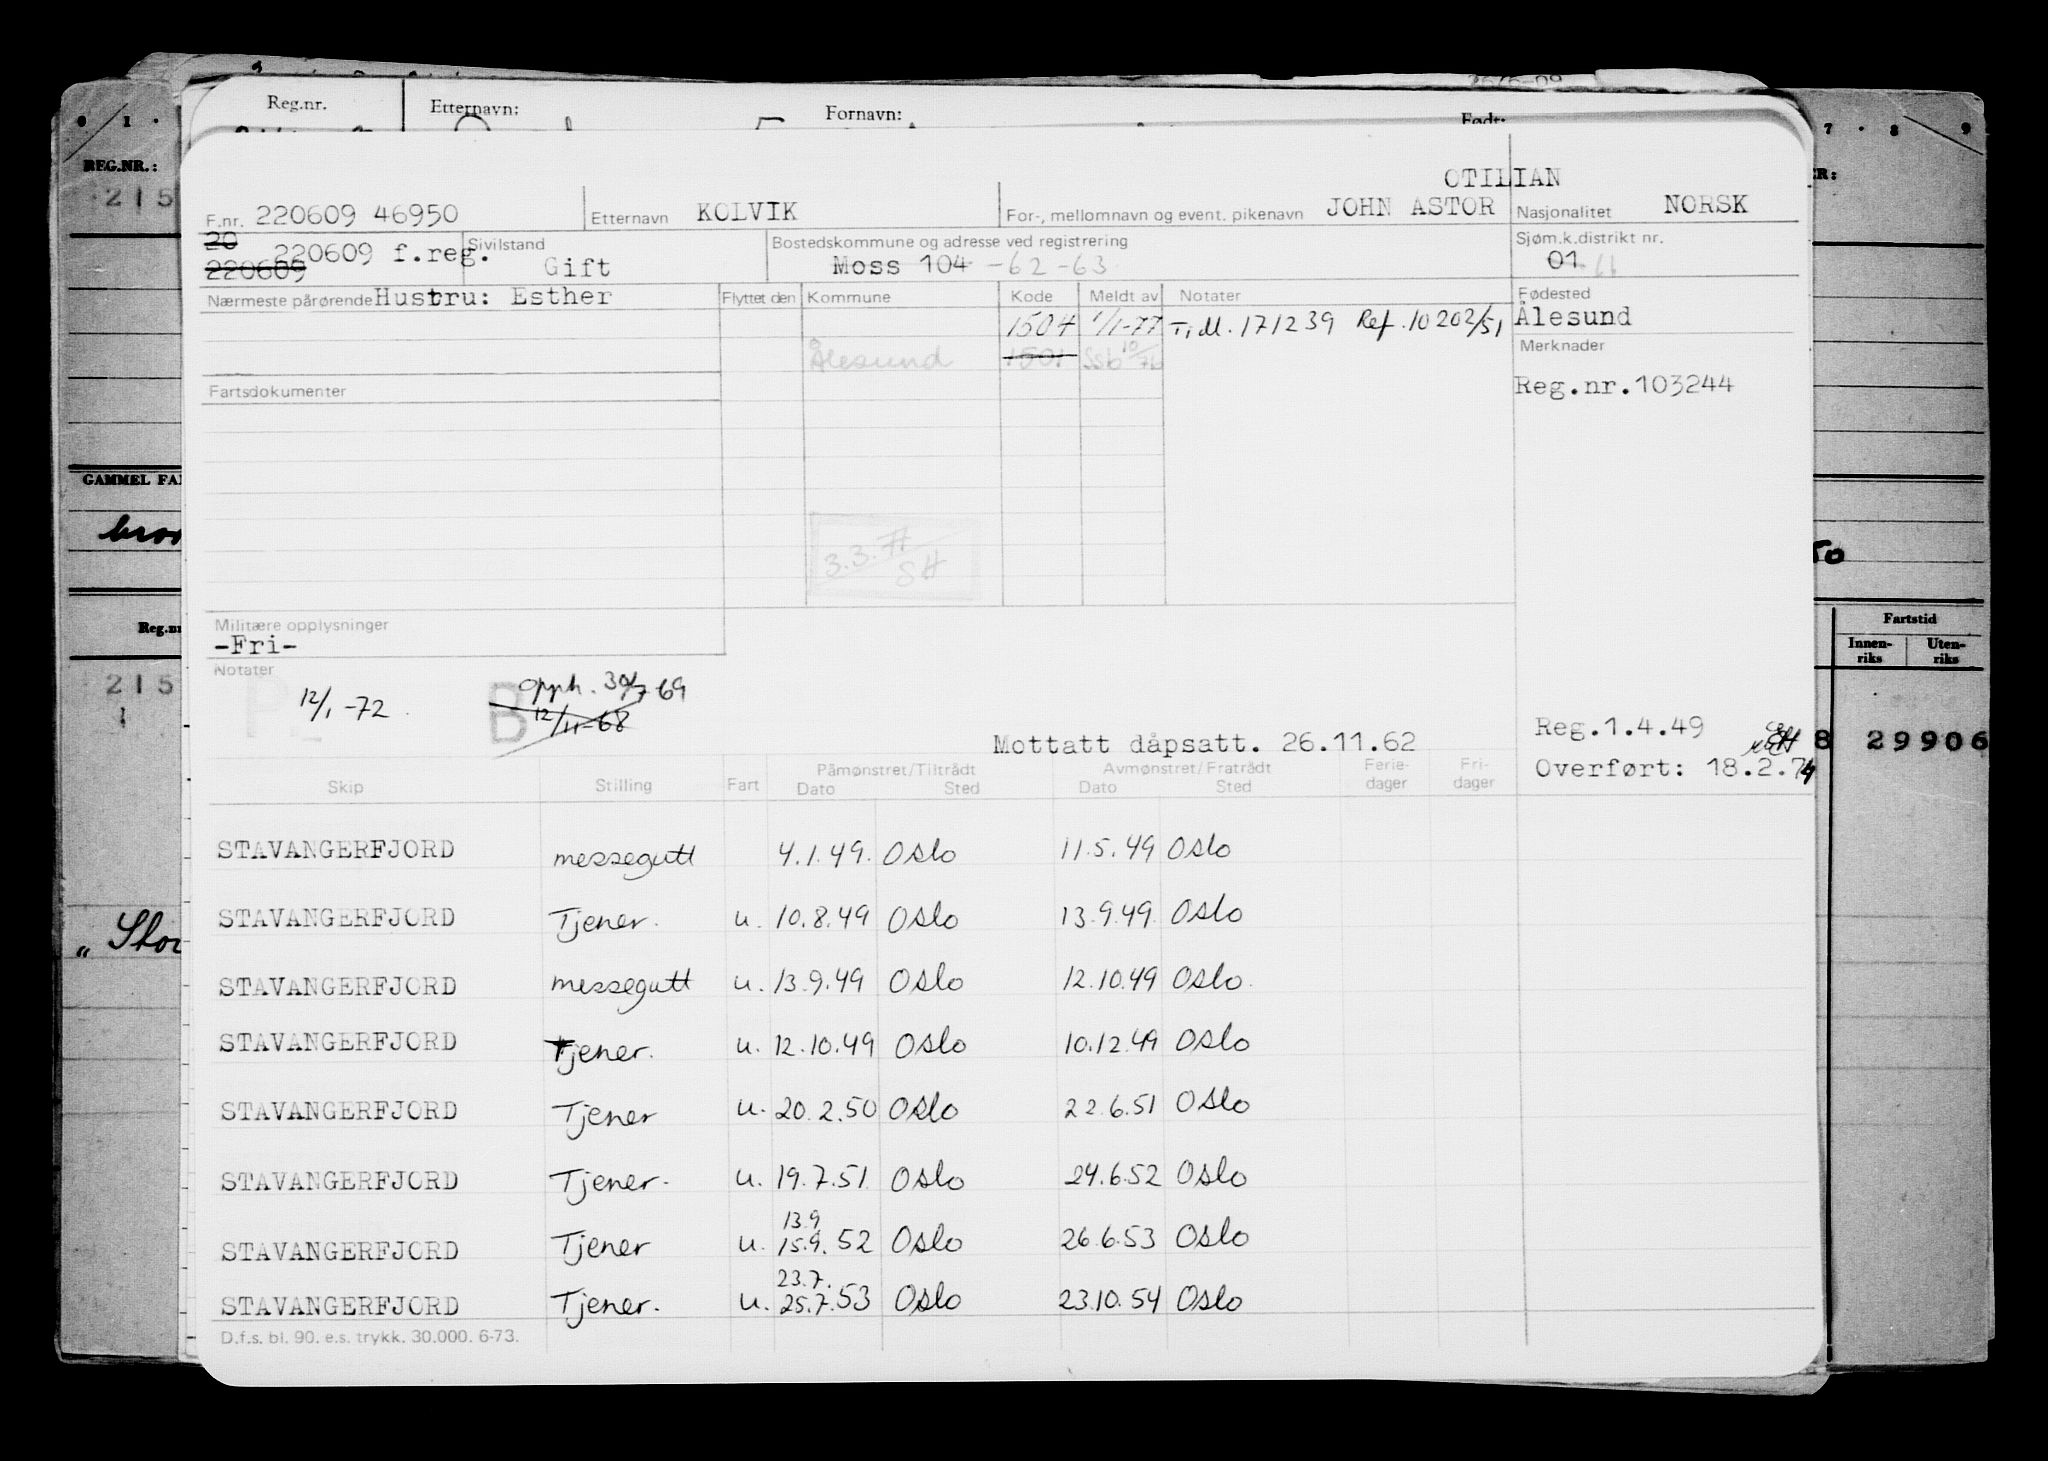 Reg.nr. Etternavn: Fornavn: Født:
0 1 · 7 · 8 9
REG.NR.:
215
OTILIAN
F.nr. 220609 46950 Etternavn KOLVIK For-, mellomnavn og event. pikenavn JOHN ASTOR Nasjonalitet NORSK
20 220609 f.reg. Sivilstand Gift Bostedskommune og adresse ved registrering Sjøm.k.distrikt nr.
220609 Moss 104 -62-63 01
Nærmeste pårørende Hustru: Esther Flyttet den Kommune Kode Meldt av Notater Fødested
1504 1/1-77 T.M. 171239 Ref. 10202/51 Ålesund
Ålesund 1501 Ssb 10/76 Merknader
Fartsdokumenter Reg.nr.103244
GAMMEL FA
3.3.77
SH
Militære opplysninger
-Fri-
Notater
P
12/1-72
B
opph. 30/7-69
12/11-68
Mottatt dåpsatt. 26.11.62
Reg.1.4.49
Overført: 18.2.74
Reg.nr
215
1
Fartstid
Innen-riks Uten-riks
8 29906
Skip Stilling Fart Påmønstret/Tiltrådt Avmønstret/Fratrådt Ferie-dager Fri-dager
Dato Sted Dato Sted
STAVANGERFJORD messegutt 4.1.49. Oslo 11.5.49 Oslo
STAVANGERFJORD Tjener. u. 10.8.49 Oslo 13.9.49. Oslo
STAVANGERFJORD messegutt u. 13.9.49 Oslo 12.10.49 Oslo.
STAVANGERFJORD Tjener. u. 12.10.49 Oslo 10.12.49 Oslo
STAVANGERFJORD Tjener u. 20.2.50 Oslo 22.6.51 Oslo
STAVANGERFJORD Tjener. u. 19.7.51 Oslo 24.6.52 Oslo
13.9
STAVANGERFJORD Tjener u. 15.9.52 Oslo 26.6.53 Oslo
23.7.
STAVANGERFJORD Tjener. u. 25.7.53 Oslo 23.10.54 Oslo
D.f.s. bl. 90. e.s. trykk. 30.000. 6-73.